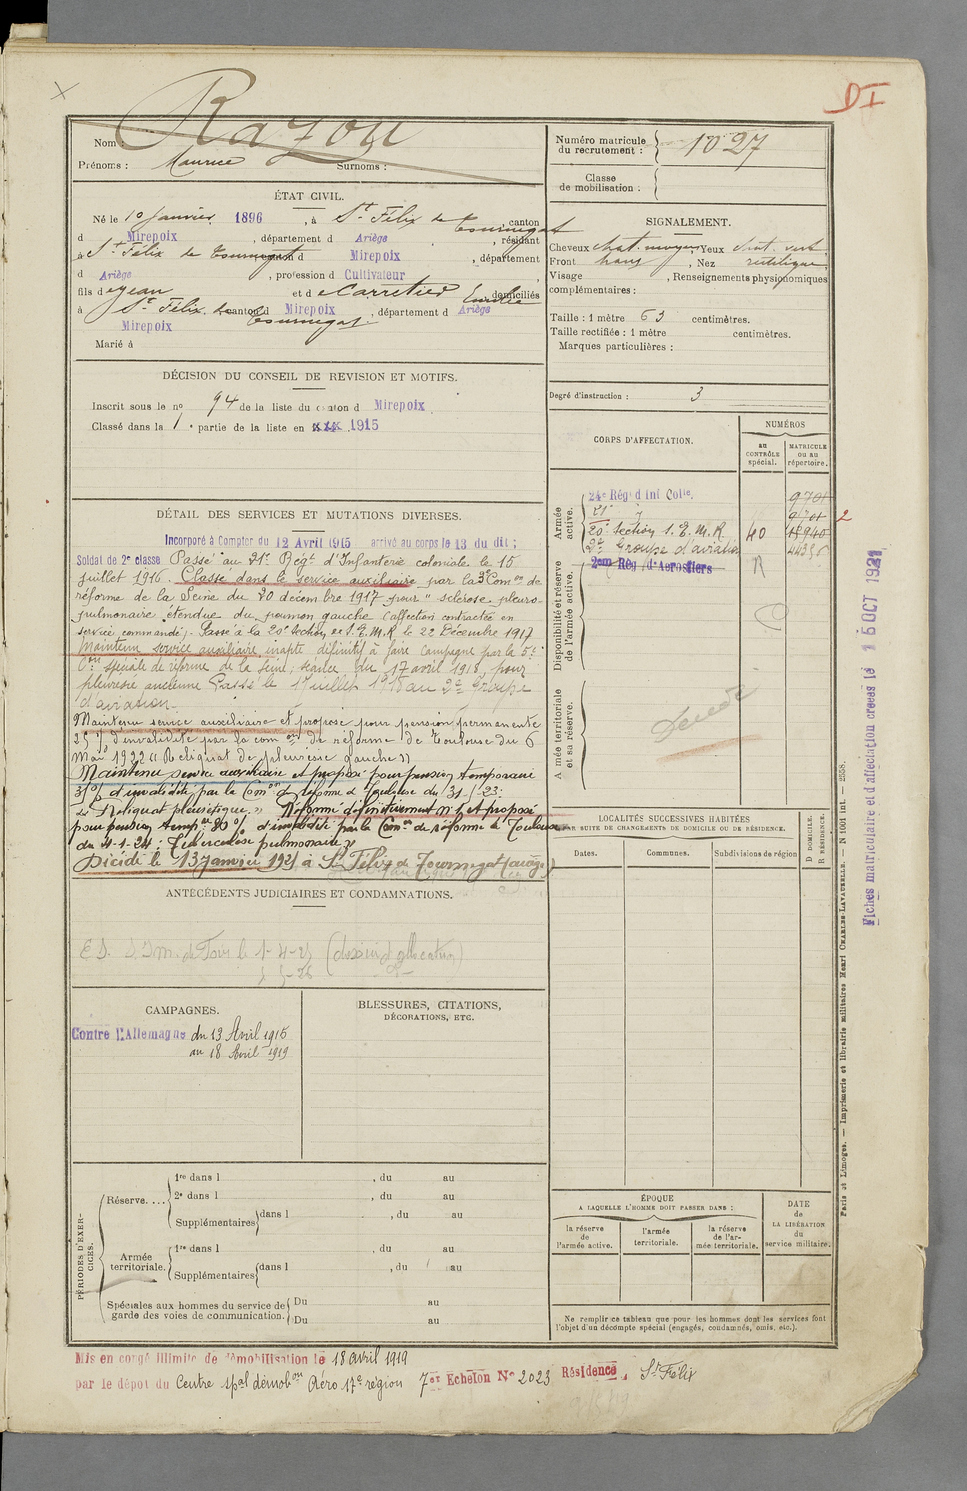 DI
Nom : Razou
Prénoms : Maurice Surnoms :
Numéro matricule du recrutement : 1027
Classe de mobilisation :
ÉTAT CIVIL.
Né le 10 Janvier 1896, à St Félix de Tournegat, canton
d Mirepoix, département d Ariège, résidant
à St Félix de Tournegat canton d Mirepoix, département
d Ariège, profession d Cultivateur
fils de Jean et de Carretier Emilie domiciliés
à St Félix de Tournegat canton d Mirepoix, département d Ariège
Mirepoix
Marié à
SIGNALEMENT.
Cheveux chat. moyen, Yeux chat. vert
Front haut, Nez rectiligne
Visage , Renseignements physionomiques
complémentaires :
Taille : 1 mètre 63 centimètres.
Taille rectifiée : 1 mètre centimètres.
Marques particulières :
Degré d'instruction : 3
DÉCISION DU CONSEIL DE REVISION ET MOTIFS.
Inscrit sous le no 94 de la liste du canton d Mirepoix
Classé dans la 1e partie de la liste en 1915
CORPS D'AFFECTATION.
NUMÉROS
au CONTRÔLE spécial.
MATRICULE ou au répertoire.
Armée active.
24e Rég. d Inf Colle. 9701
21e 9701 2
20e Section S. E. M. R. 40 18940
2e Groupe d'aviation
2em Rég. d'Aerostiers R
Disponibilité et réserve de l'armée active.
Armée territoriale et sa réserve.
DÉTAIL DES SERVICES ET MUTATIONS DIVERSES.
Incorporé à Compter du 12 Avril 1915 arrivé au corps le 13 du dit ;
Soldat de 2e classe Passé au 21e Régt d'Infanterie coloniale le 15
juillet 1916. Classé dans le service auxiliaire par la 3e Comon de
réforme de la Seine du 20 décembre 1917 pour "sclérose pleuro-
pulmonaire étendue du poumon gauche (affection contractée en
service commandé). Passé à la 20e Section de S. E. M. R. le 22 Décembre 1917
Maintenu service auxiliaire inapte définitif à faire campagne par la 5e
Con spéciale de réforme de la Seine, séance du 17 avril 1918, pour
pleurésie ancienne Passé le 1 juillet 1918 au 2e Groupe
d'aviation.
Maintenu service auxiliaire et proposé pour pension permanente
25 % d'invalidité par la comon de réforme de Toulouse du 6
Mai 1922 "Reliquat de pleurésie gauche"
Maintenu service auxiliaire et proposé pour pension temporaire
d'invalidité par la Comon de réforme de Toulouse du
"Reliquat pleurétique" Réformé définitivement no 1 et proposé
pour pension tempre d'invalidité par la Comon de réforme de Toulouse
du 4-1-24 : Tuberculose pulmonaire
Décédé le 13 janvier 1925 à St Félix de Tournegat (ariège)
ANTÉCÉDENTS JUDICIAIRES ET CONDAMNATIONS.
LOCALITÉS SUCCESSIVES HABITÉES
PAR SUITE DE CHANGEMENTS DE DOMICILE OU DE RÉSIDENCE.
Dates. Communes. Subdivisions de région
D DOMICILE.
R RÉSIDENCE.
CAMPAGNES.
Contre l'Allemagne du 13 Avril 1915
au 18 Avril 1919
BLESSURES, CITATIONS,
DÉCORATIONS, ETC.
PÉRIODES D'EXERCICES.
Réserve.... 1re dans l , du au
2e dans l , du au
Supplémentaires dans l , du au
Armée territoriale. 1re dans l , du au
Supplémentaires dans l , du au
Spéciales aux hommes du service de garde des voies de communication. Du au
Du au
ÉPOQUE
A LAQUELLE L'HOMME DOIT PASSER DANS :
la réserve de l'armée active.
l'armée territoriale.
la réserve de l'armée territoriale.
DATE de LA LIBÉRATION du service militaire.
Ne remplir ce tableau que pour les hommes dont les services font
l'objet d'un décompte spécial (engagés, condamnés, omis, etc.).
Mis en congé illimité de démobilisation le 18 avril 1919
par le dépôt du Centre 1pal démobon Aéro 17e région 7er Echelon No 2023 Résidence, St Félix
Fiches matriculaire et d'affectation créées le 15 OCT 1921
Paris et Limoges. — Imprimerie et librairie militaires Henri CHARLES-LAVAUZELLE. — N 1001 Int. — 2558.